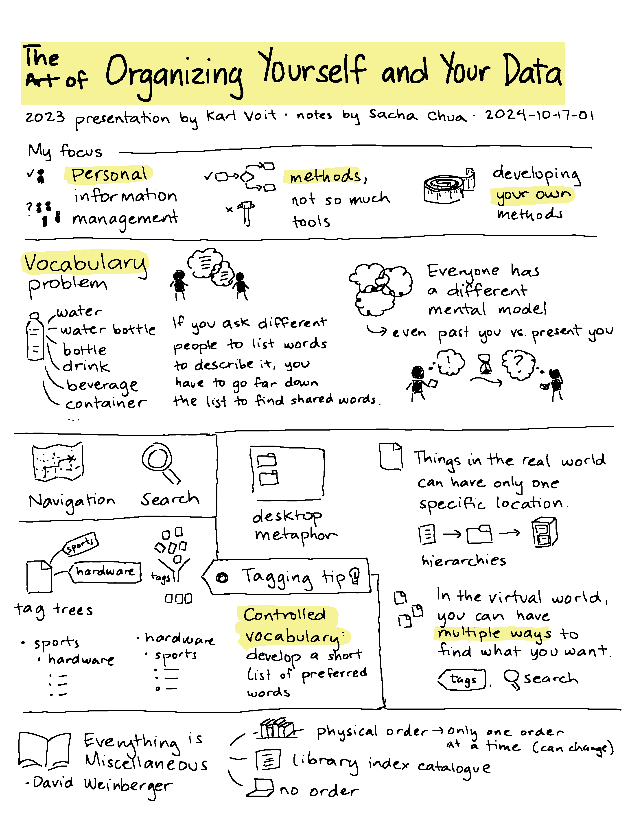 The Art of Organizing Yourself and Your Data
2023 presentation by Karl Voit · notes by Sacha Chua · 2024-10-17-01
My focus
Personal
information
management
methods,
not so much
tools
developing
your own
methods
Vocabulary
problem
water
water bottle
bottle
drink
beverage
container
...
If you ask different
people to list words
to describe it, you
have to go far down
the list to find shared words.
Everyone has
a different
mental model
→ even past you vs. present you
!
?
Navigation
Search
desktop
metaphor
Things in the real world
can have only one
specific location.
hierarchies
sports
hardware
tags
tag trees
· sports
· hardware
· hardware
· sports
Tagging tip
Controlled
vocabulary:
develop a short
list of preferred
words
In the virtual world,
you can have
multiple ways to
find what you want.
tags, search
Everything is
Miscellaneous
- David Weinberger
physical order → only one order
at a time (can change)
library index catalogue
no order